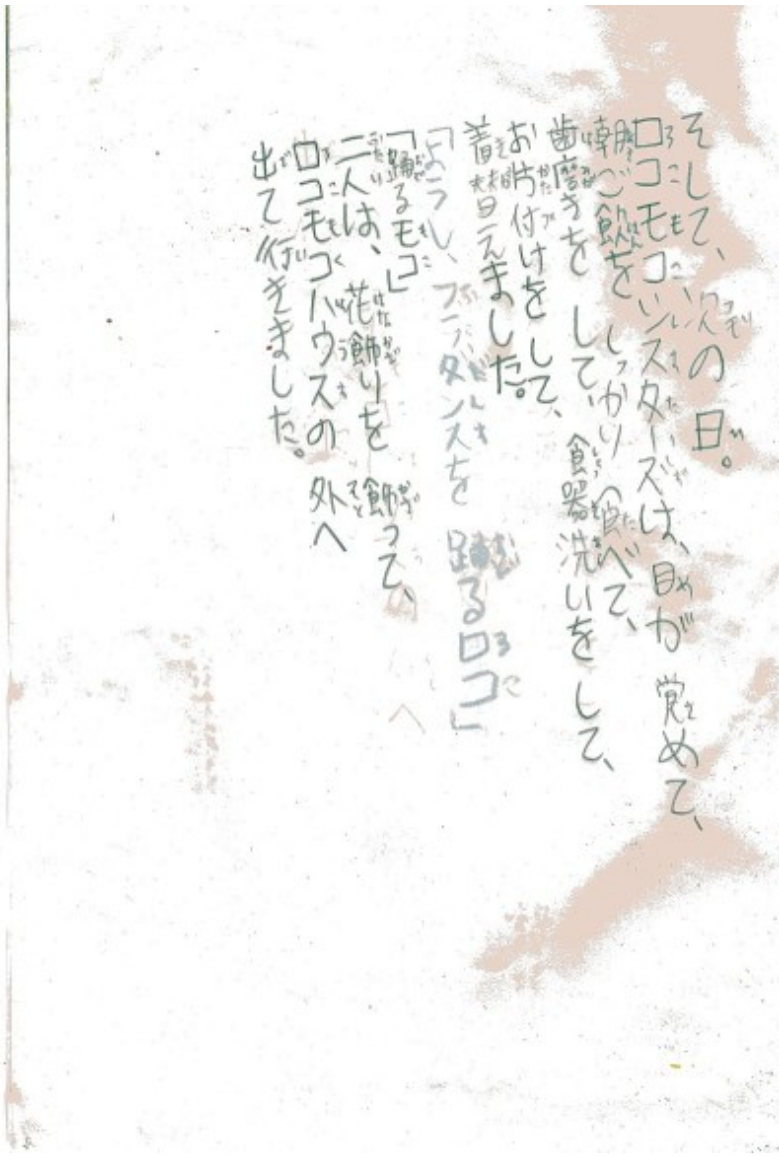 そして、次の日。
ロコモコシスターズは、目が覚めて、
朝ご飯をしっかり食べて、
歯磨きをして、食器洗いをして、
お片付けをして、
着替えました。
「ようし、フラダンスを踊るロコ」
「踊るモコ」
二人は、花飾りを飾って、
ロコモコハウスの外へ
出て行きました。